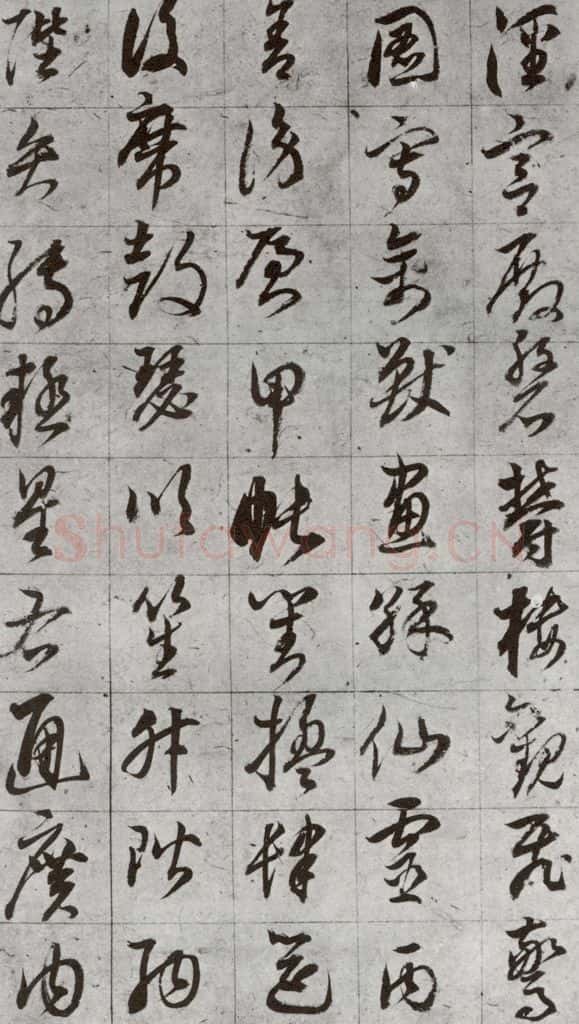 涇宮殿磐鬱樓觀飛驚
圖寫禽獸畫綵仙靈丙
舍傍啟甲帳對楹肆筵
設席鼓瑟吹笙升階納
陛弁轉疑星右通廣內
Shufawang.CN